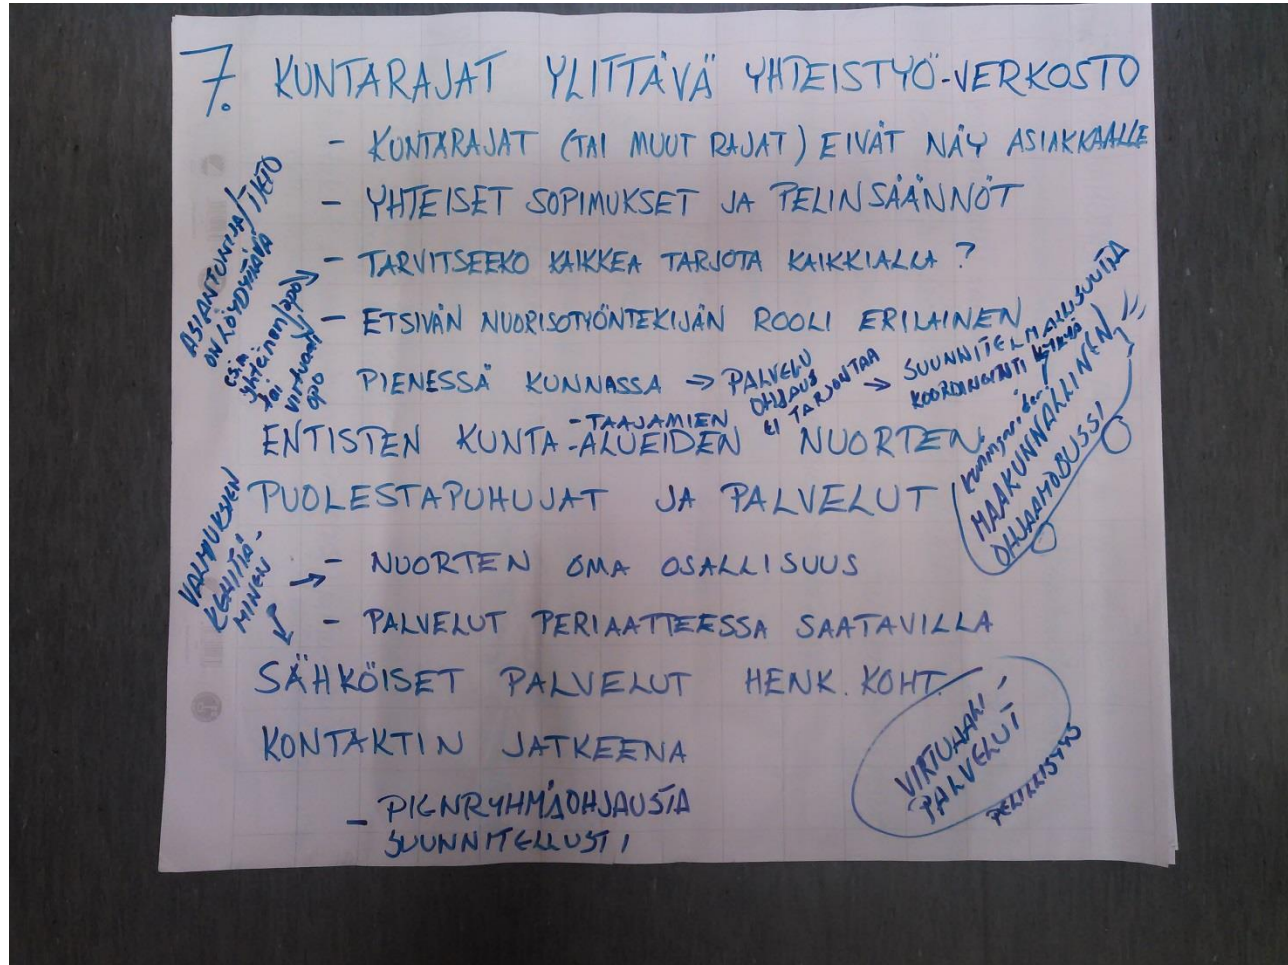 7. KUNTARAJAT YLITTÄVÄ YHTEISTYÖ-VERKOSTO
- KUNTARAJAT (TAI MUUT RAJAT) EIVÄT NÄY ASIAKKAALLE
- YHTEISET SOPIMUKSET JA PELINSÄÄNNÖT
- TARVITSEEKO KAIKKEA TARJOTA KAIKKIALLA ?
- ETSIVÄN NUORISOTYÖNTEKIJÄN ROOLI ERILAINEN
PIENESSÄ KUNNASSA → PALVELU
OHJAUS
EI TARJONTAA
→ SUUNNITELMALLISUUTTA
KOORDINOINTI
ASIANTUNTIJA/TIETO
ON LÖYDYTTÄVÄ
esim.
yhteinen/opo
tai
virtuaali
opo
- TAAJAMIEN
ENTISTEN KUNTA-ALUEIDEN NUORTEN
PUOLESTAPUHUJAT JA PALVELUT
MAAKUNNALLINEN
OHJAAMOBUSSI
VALMIUKSIEN
KEHITTÄ-
MINEN
→ - NUORTEN OMA OSALLISUUS
- PALVELUT PERIAATTEESSA SAATAVILLA
SÄHKÖISET PALVELUT HENK. KOHT.
KONTAKTIN JATKEENA
- PIENRYHMÄOHJAUSTA
SUUNNITELLUSTI
VIRTUAALI-
PALVELUT
PELILLISTYS